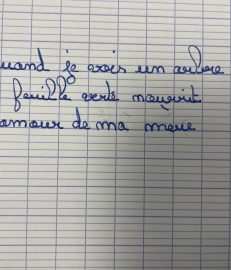 uand je vois un arbre
feuille verte mourir
amour de ma mere